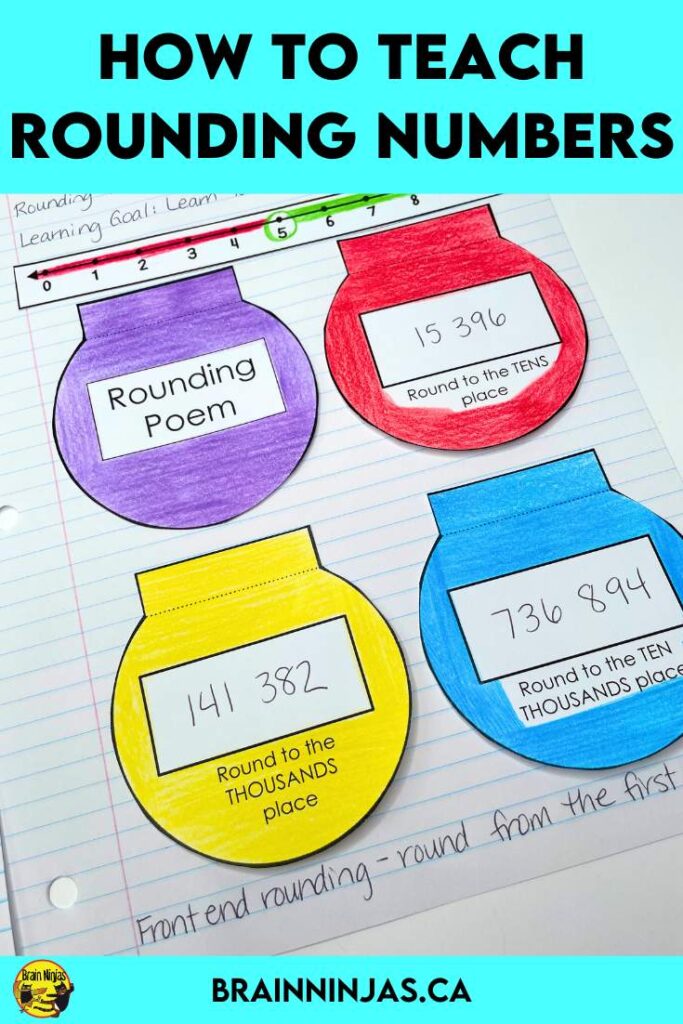 HOW TO TEACH
ROUNDING NUMBERS
Rounding
Learning Goal: Learn
0 1 2 3 4 5 6 7 8
Rounding
Poem
15 396
Round to the TENS
place
141 382
Round to the
THOUSANDS
place
736 894
Round to the TEN
THOUSANDS place
Front end rounding - round from the first
Brain Ninjas
BRAINNINJAS.CA